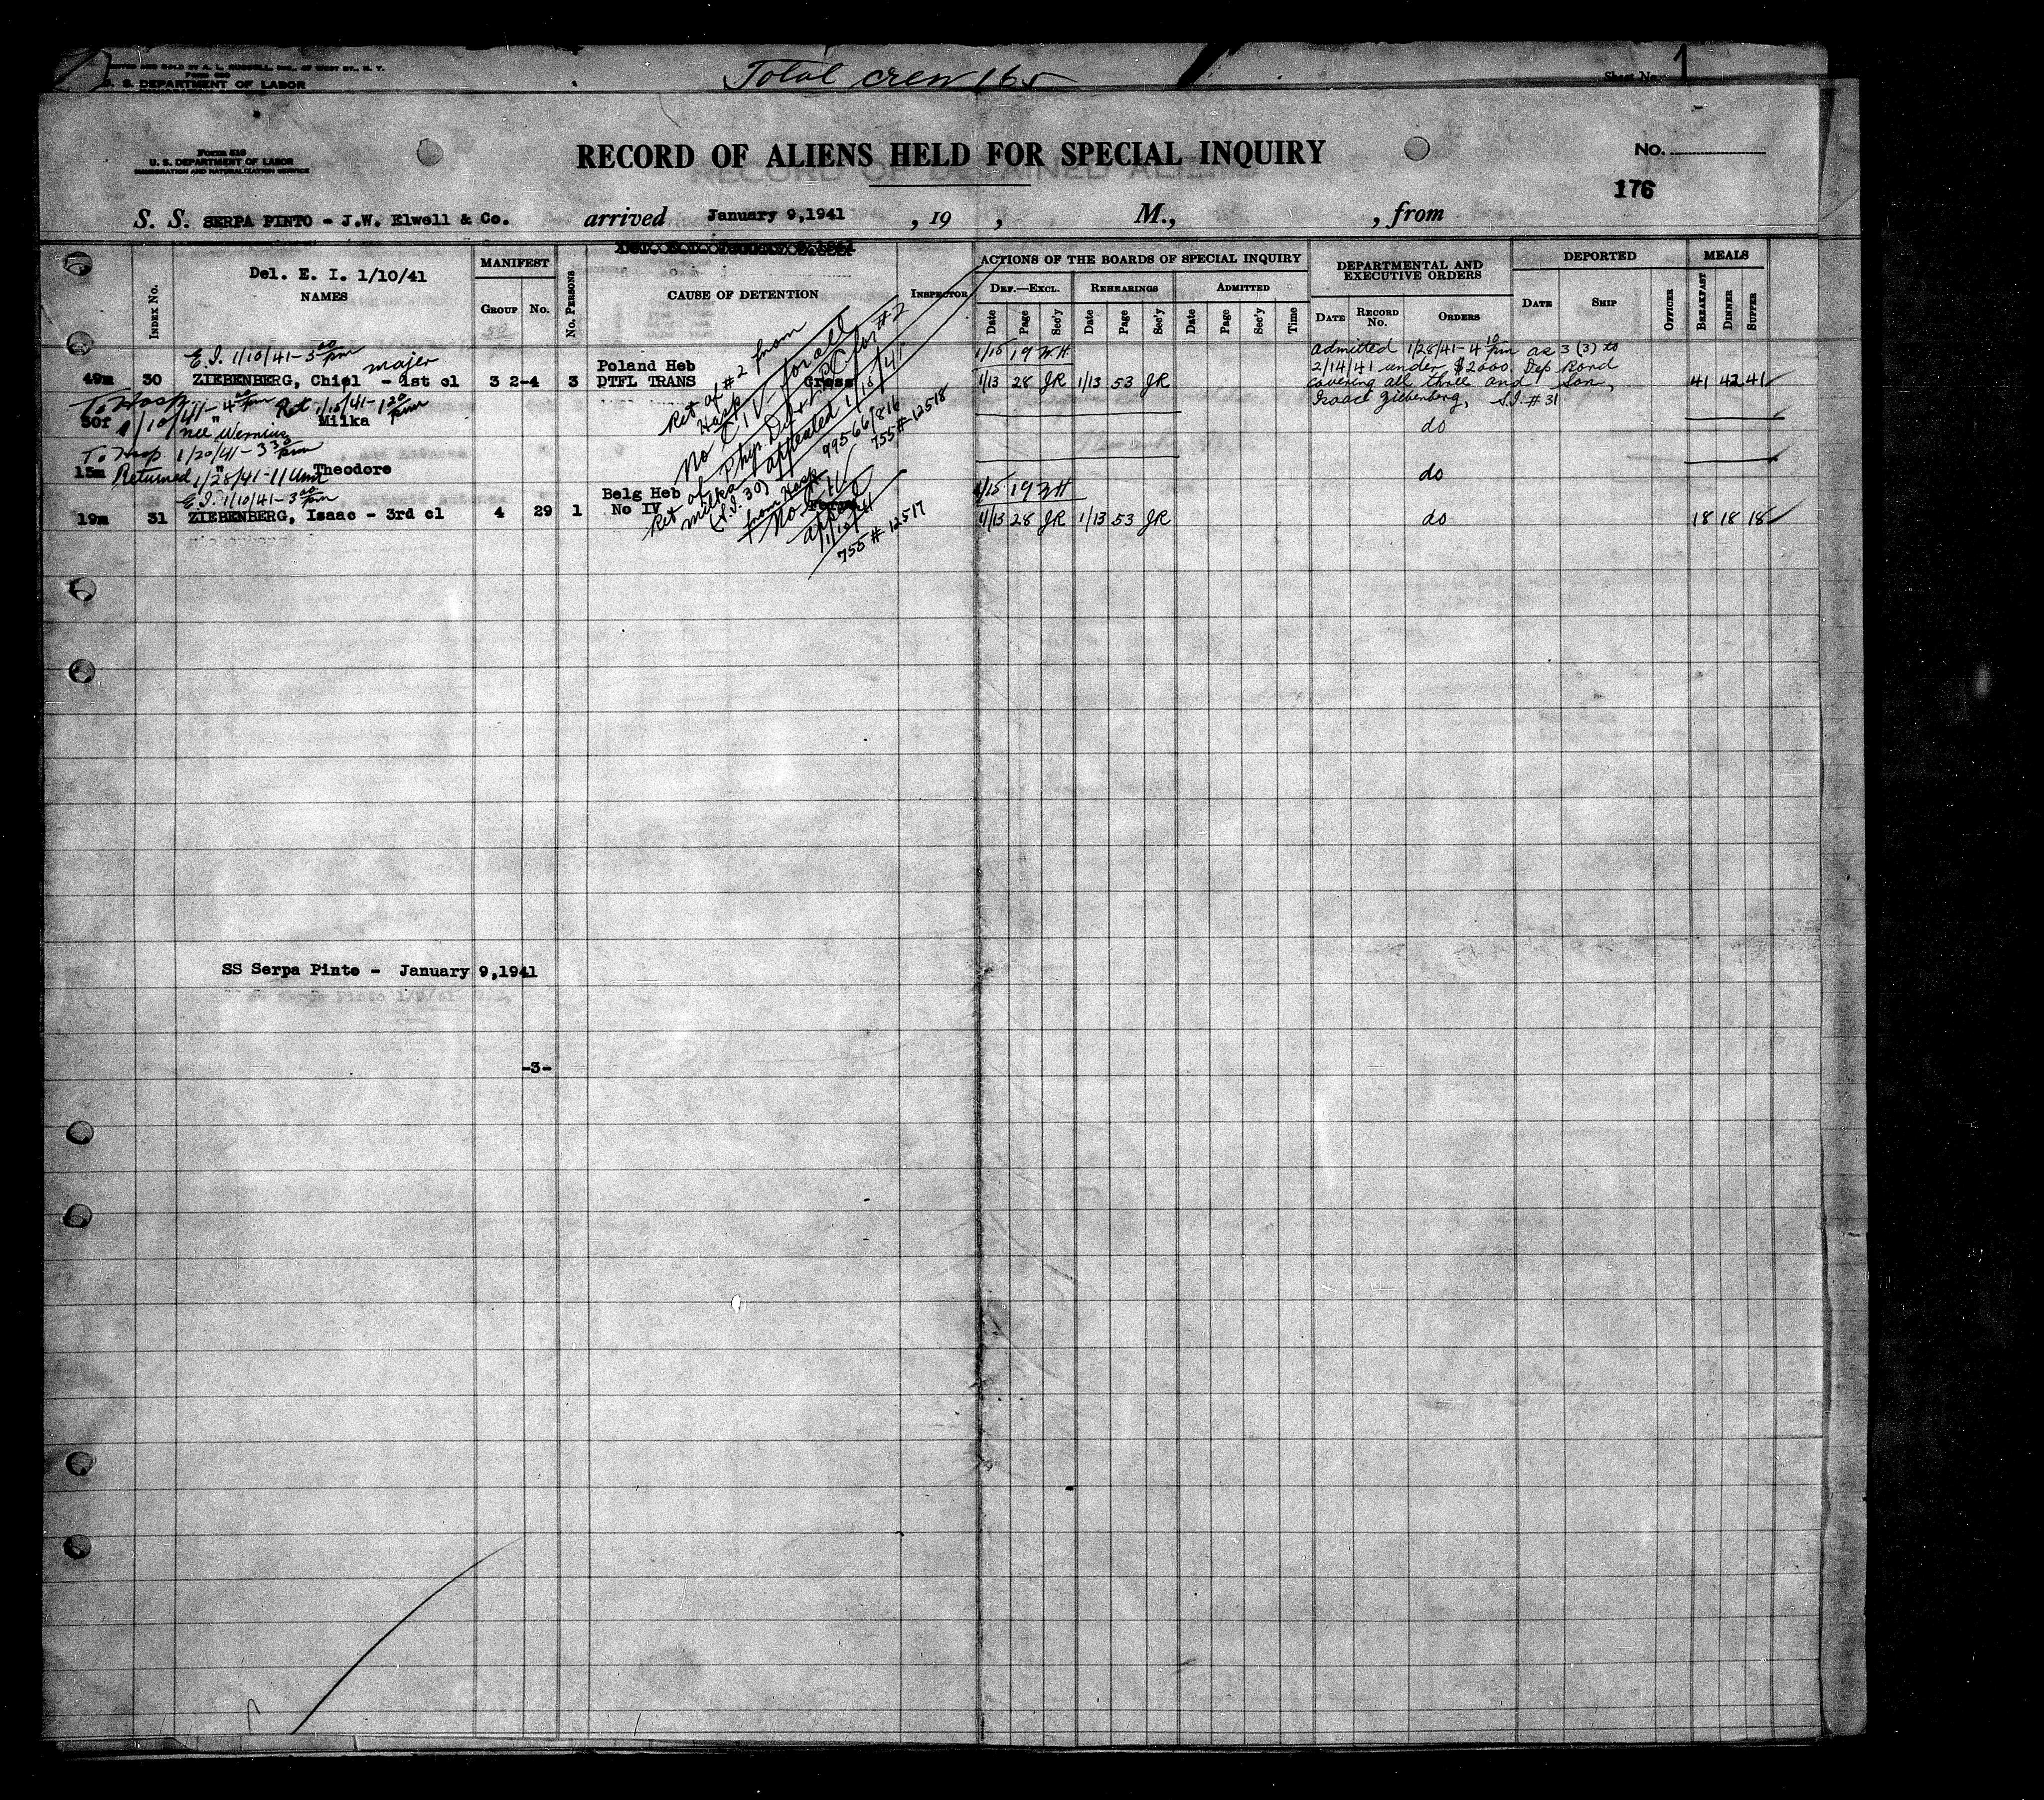 Total crew 165
Sheet No. 1
U. S. DEPARTMENT OF LABOR
Form 616
U. S. DEPARTMENT OF LABOR
IMMIGRATION AND NATURALIZATION SERVICE
RECORD OF ALIENS HELD FOR SPECIAL INQUIRY
No.
176
S. S. SERPA PINTO - J.W. Elwell & Co. arrived January 9,1941 , 19 , M., , from
Index No.
Del. E. I. 1/10/41
NAMES
MANIFEST
Group No.
No. Persons
CAUSE OF DETENTION
Inspector
ACTIONS OF THE BOARDS OF SPECIAL INQUIRY
Def.—Excl. Rehearings Admitted
Date Page Sec'y Date Page Sec'y Date Page Sec'y Time
DEPARTMENTAL AND EXECUTIVE ORDERS
Date Record No. Orders
DEPORTED
Date Ship Officer
MEALS
Breakfast Dinner Supper
E.I. 1/10/41-3 00 pm
majer
49m 30 ZIEBENBERG, Chiel - 1st cl 3 2-4 3
Poland Heb
DTFL TRANS Cross
1/15 19
1/13 28 JR 1/13 53 JR
admitted 1/28/41-4 10 pm as 3 (3) to
2/14/41 under $2000. Dep Bond
covering all three and son,
Isaac Ziebenberg, S.I. #31
41 42 41
To Hosp 1/10/41-4 00 pm Ret 1/10/41-1 20 pm
50f " Milka
do
nee Wernius
To Hosp 1/20/41-3 30 pm
15m " Theodore
do
Returned 1/28/41-11 am
E.I. 1/10/41-3 00 pm
19m 31 ZIEBENBERG, Isaac - 3rd cl 4 29 1
Belg Heb
No IV
1/15 19
1/13 28 JR 1/13 53 JR
do
18 18 18
Ret of #2 from
Hosp
No C IV- for all
PC for #2
appealed 1/15/41
99566/816
755#12518
Ret Milka
(S.I. 30)
from Hosp
No IV
755#12517
SS Serpa Pinto - January 9,1941
-3-